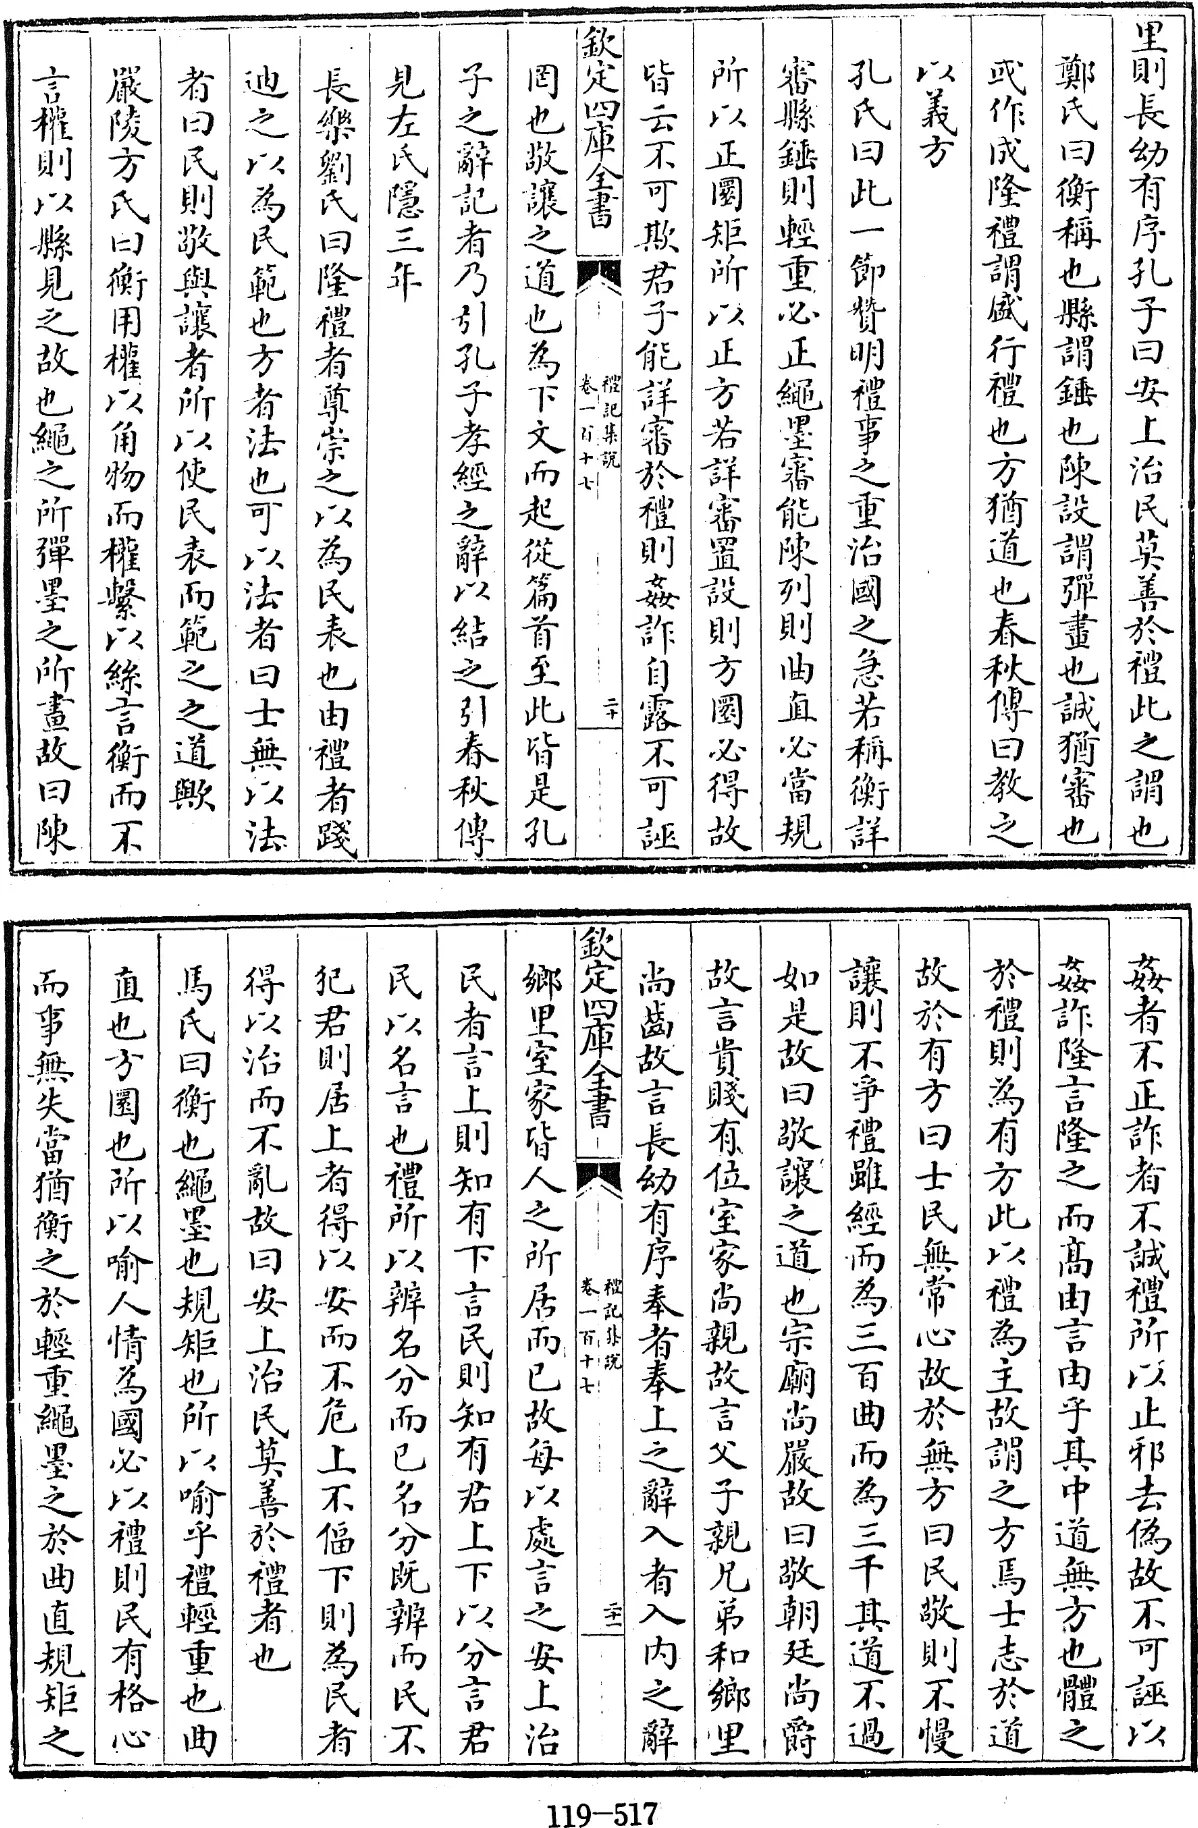 里則長幼有序孔子曰安上治民莫善於禮此之謂也
鄭氏曰衡稱也縣謂錘也陳設謂彈畫也誠猶審也
或作成隆禮謂盛行禮也方猶道也春秋傳曰教之
以義方
孔氏曰此一節贊明禮事之重治國之急若稱衡詳
審縣錘則輕重必正繩墨審能陳列則曲直必當規
所以正圜矩所以正方若詳審置設則方圜必得故
皆云不可欺君子能詳審於禮則姦詐自露不可誣
欽定四庫全書
禮記集說
卷一百十七
二十
罔也敬讓之道也為下文而起從篇首至此皆是孔
子之辭記者乃引孔子孝經之辭以結之引春秋傳
見左氏隱三年
長樂劉氏曰隆禮者尊崇之以為民表也由禮者踐
迪之以為民範也方者法也可以法者曰士無以法
者曰民則敬與讓者所以使民表而範之之道歟
嚴陵方氏曰衡用權以角物而權繫以絲言衡而不
言權則以縣見之故也繩之所彈墨之所畫故曰陳
姦者不正詐者不誠禮所以止邪去偽故不可誣以
姦詐隆言隆之而髙由言由乎其中道無方也體之
於禮則為有方此以禮為主故謂之方焉士志於道
故於有方曰士民無常心故於無方曰民敬則不慢
讓則不爭禮雖經而為三百曲而為三千其道不過
如是故曰敬讓之道也宗廟尚嚴故曰敬朝廷尚爵
故言貴賤有位室家尚親故言父子親兄弟和鄉里
尚齒故言長幼有序奉者奉上之辭入者入内之辭
欽定四庫全書
禮記集說
卷一百十七
二十一
鄉里室家皆人之所居而已故每以處言之安上治
民者言上則知有下言民則知有君上下以分言君
民以名言也禮所以辨名分而已名分既辨而民不
犯君則居上者得以安而不危上不偪下則為民者
得以治而不亂故曰安上治民莫善於禮者也
馬氏曰衡也繩墨也規矩也所以喻乎禮輕重也曲
直也方圜也所以喻人情為國必以禮則民有格心
而事無失當猶衡之於輕重繩墨之於曲直規矩之
119-517